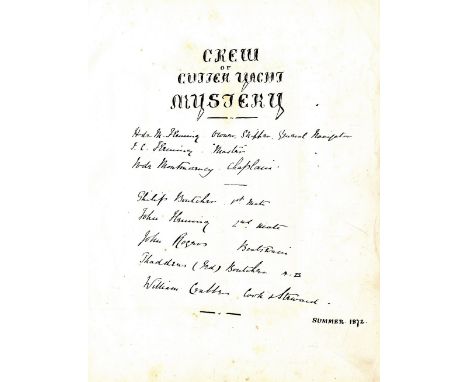 CREW
OF
CUTTER YACHT
MYSTERY
M. Fleming Owner, Skipper, General Navigator
Fleming Master
Montmorency Chaplain
Philip Boutcher 1st Mate
John Fleming 2nd Mate
John Rogers Boatswain
Thaddeus (Ted) Boutcher A.B
William Cubber Cook & Steward
SUMMER 1872.